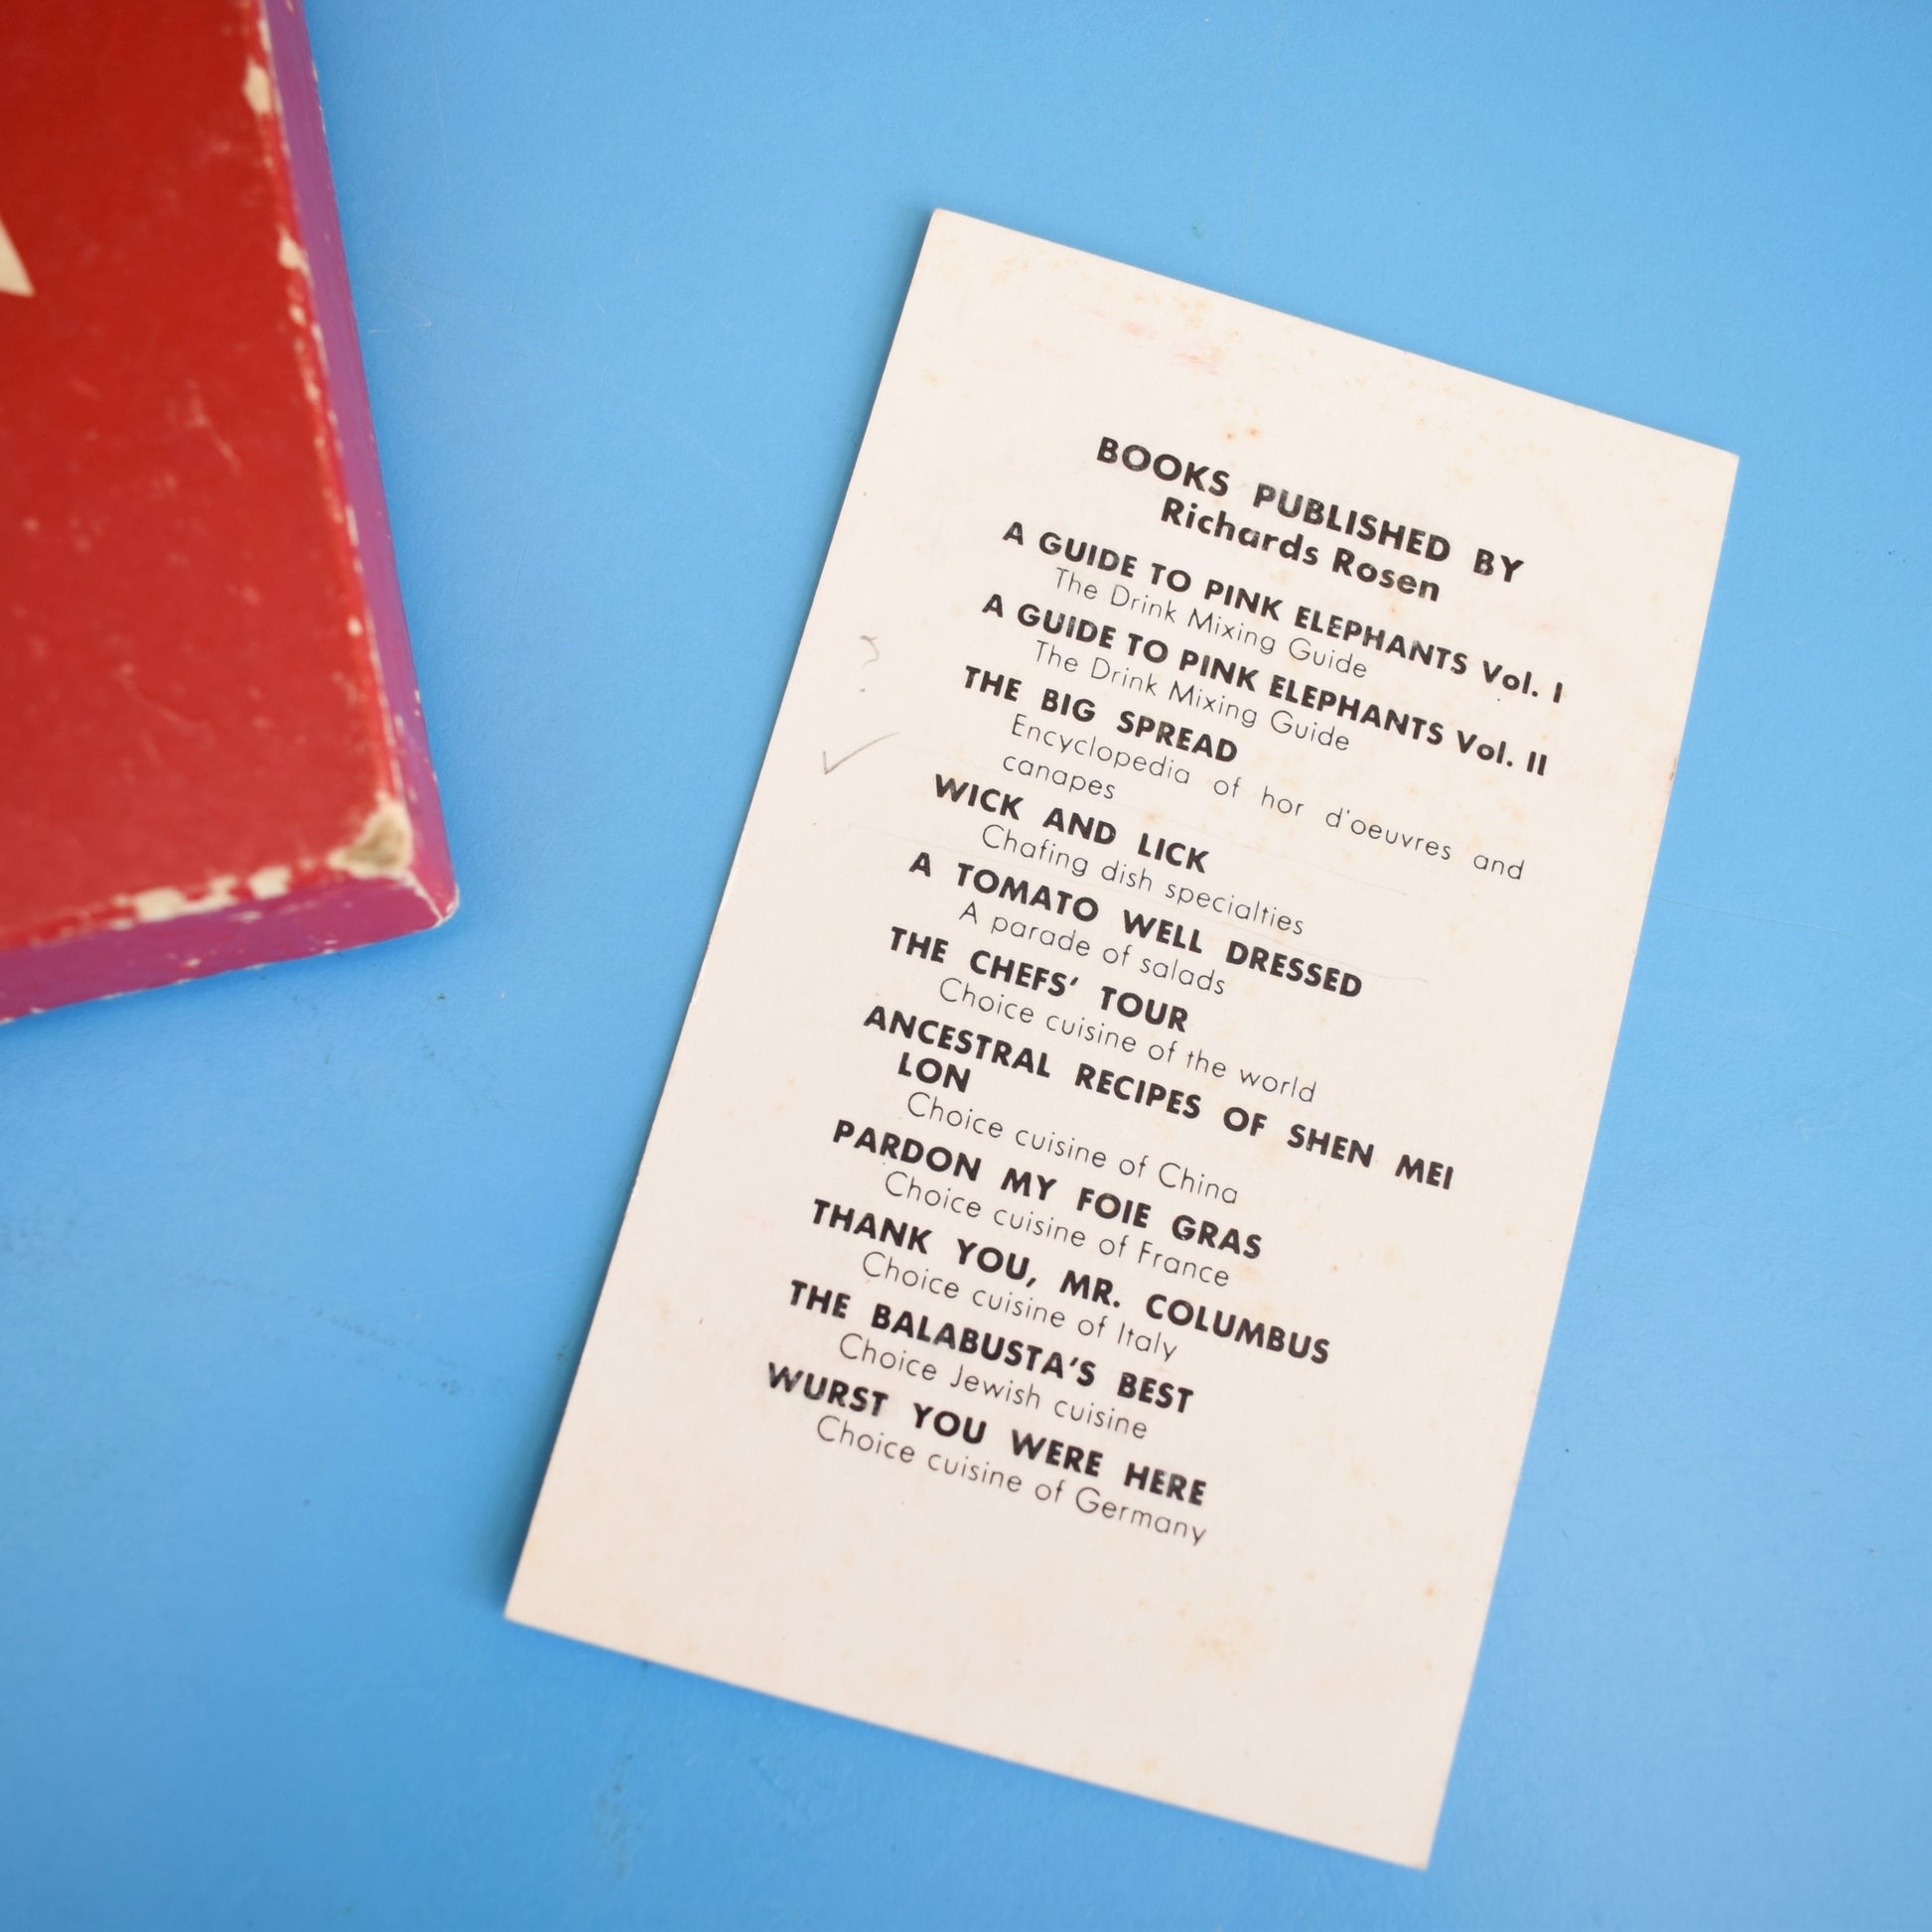 BOOKS PUBLISHED BY
Richards Rosen
A GUIDE TO PINK ELEPHANTS Vol. I
The Drink Mixing Guide
A GUIDE TO PINK ELEPHANTS Vol. II
The Drink Mixing Guide
THE BIG SPREAD
Encyclopedia of hor d'oeuvres and
canapes
WICK AND LICK
Chafing dish specialties
A TOMATO WELL DRESSED
A parade of salads
THE CHEFS' TOUR
Choice cuisine of the world
ANCESTRAL RECIPES OF SHEN MEI
LON
Choice cuisine of China
PARDON MY FOIE GRAS
Choice cuisine of France
THANK YOU, MR. COLUMBUS
Choice cuisine of Italy
THE BALABUSTA'S BEST
Choice Jewish cuisine
WURST YOU WERE HERE
Choice cuisine of Germany